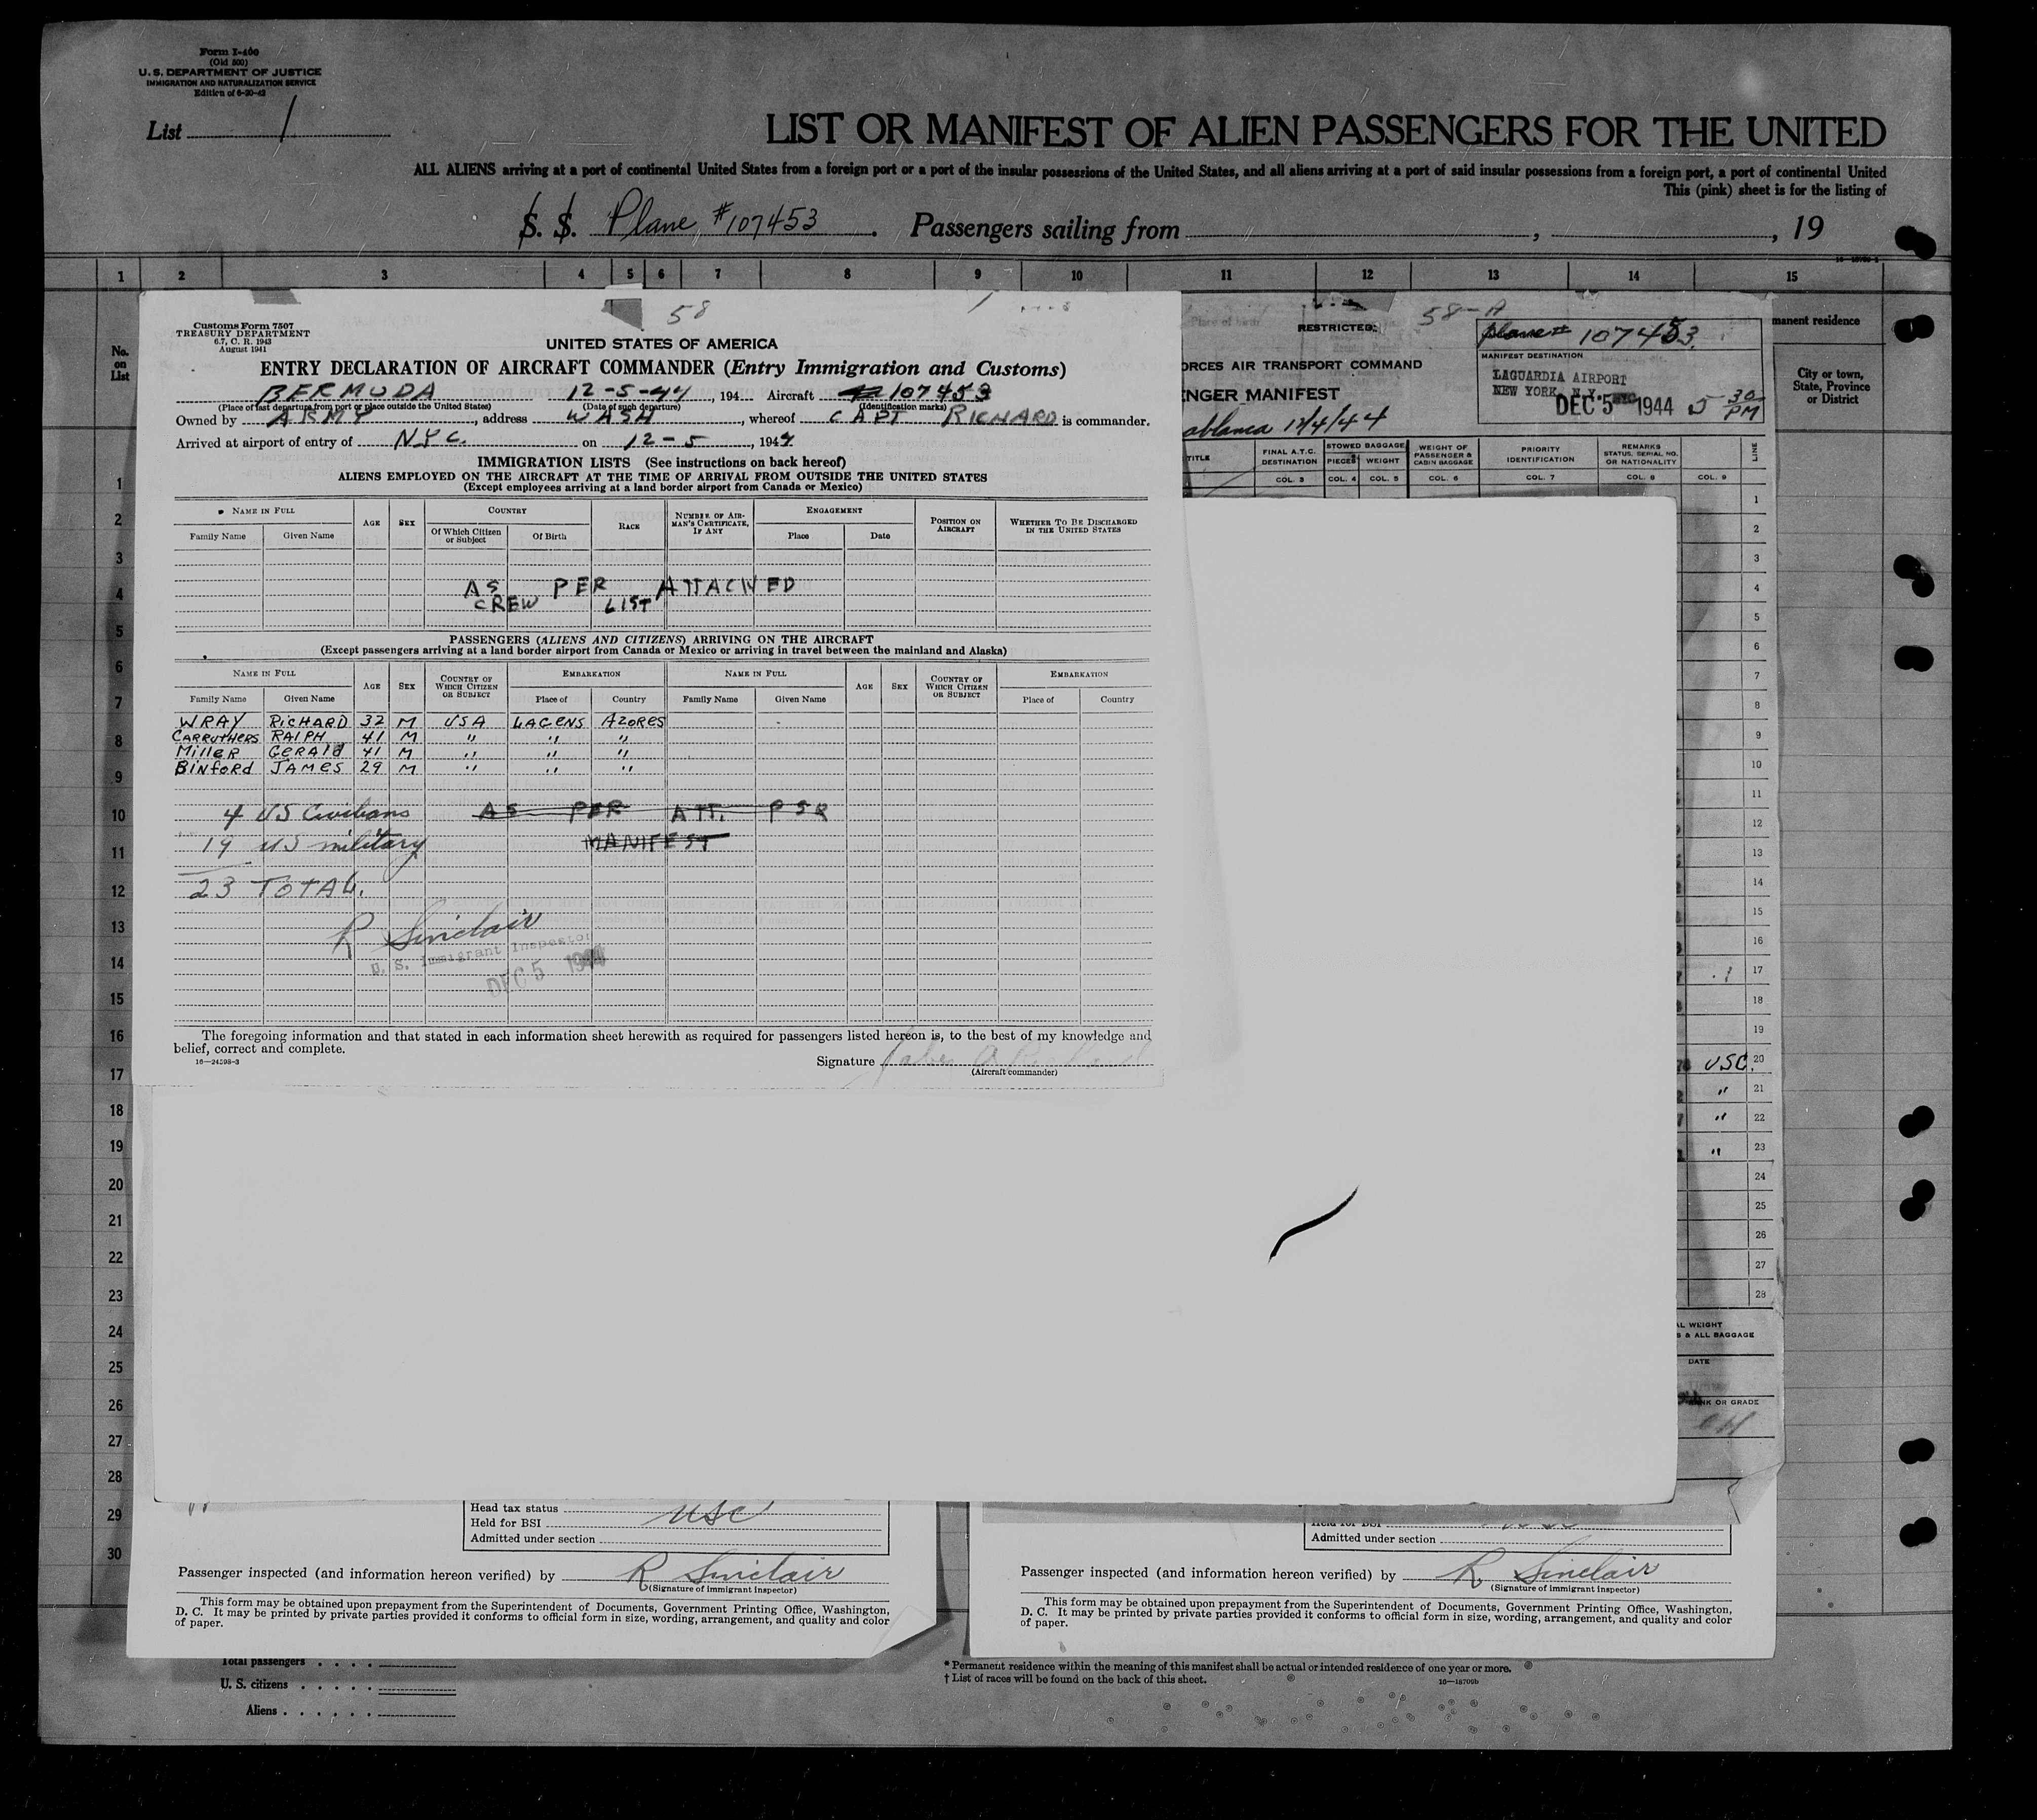 Form I-400
(Old 500)
U. S. DEPARTMENT OF JUSTICE
IMMIGRATION AND NATURALIZATION SERVICE
Edition of 6-20-42
List 1
LIST OR MANIFEST OF ALIEN PASSENGERS FOR THE UNITED
ALL ALIENS arriving at a port of continental United States from a foreign port or a port of the insular possessions of the United States, and all aliens arriving at a port of said insular possessions from a foreign port, a port of continental United
This (pink) sheet is for the listing of
S. S. Plane #107453. Passengers sailing from , , 19
1 2 3 4 5 6 7 8 9 10 11 12 13 14 15
No. on List
58
Customs Form 7507
TREASURY DEPARTMENT
6.7, C. R. 1943
August 1941
UNITED STATES OF AMERICA
ENTRY DECLARATION OF AIRCRAFT COMMANDER (Entry Immigration and Customs)
BERMUDA 12-5-44, 194 Aircraft 107453
(Place of last departure from port or place outside the United States) (Date of such departure) (Identification marks)
Owned by ARMY, address WASH, whereof CAPT RICHARD is commander.
Arrived at airport of entry of NYC. on 12-5, 1944
IMMIGRATION LISTS (See instructions on back hereof)
ALIENS EMPLOYED ON THE AIRCRAFT AT THE TIME OF ARRIVAL FROM OUTSIDE THE UNITED STATES
(Except employees arriving at a land border airport from Canada or Mexico)
NAME IN FULL AGE SEX COUNTRY RACE NUMBER OF AIRMAN'S CERTIFICATE, IF ANY ENGAGEMENT POSITION ON AIRCRAFT WHETHER TO BE DISCHARGED IN THE UNITED STATES
Family Name Given Name Of Which Citizen or Subject Of Birth Place Date
AS PER ATTACHED
CREW LIST
PASSENGERS (ALIENS AND CITIZENS) ARRIVING ON THE AIRCRAFT
(Except passengers arriving at a land border airport from Canada or Mexico or arriving in travel between the mainland and Alaska)
NAME IN FULL AGE SEX COUNTRY OF WHICH CITIZEN OR SUBJECT EMBARKATION NAME IN FULL AGE SEX COUNTRY OF WHICH CITIZEN OR SUBJECT EMBARKATION
Family Name Given Name Place of Country Family Name Given Name Place of Country
WRAY RICHARD 32 M USA LAGENS AZORES
CARRUTHERS RALPH 41 M " " "
MILLER GERALD 41 M " " "
BINFORD JAMES 29 M " " "
4 US Civilians AS PER ATT. PSR
19 US military MANIFEST
23 TOTAL.
R Sinclair
U. S. Immigrant Inspector
DEC 5 1944
The foregoing information and that stated in each information sheet herewith as required for passengers listed hereon is, to the best of my knowledge and
belief, correct and complete.
16—24598-3
Signature
(Aircraft commander)
RESTRICTED
58-A
Plane # 107453.
MANIFEST DESTINATION
LAGUARDIA AIRPORT
NEW YORK, N.Y.
DEC 5 1944 5 30 PM
ORCES AIR TRANSPORT COMMAND
NGER MANIFEST
ablanca 12/4/44
TITLE FINAL A.T.C. DESTINATION STOWED BAGGAGE PIECES WEIGHT WEIGHT OF PASSENGER & CABIN BAGGAGE PRIORITY IDENTIFICATION REMARKS STATUS, SERIAL NO. OR NATIONALITY LINE
COL. 3 COL. 4 COL. 5 COL. 6 COL. 7 COL. 8 COL. 9
manent residence
City or town, State, Province or District
1
2
3
4
5
6
7
8
9
10
11
12
13
14
15
16
17
18
19
20
21
22
23
24
25
26
27
28
29
30
1
2
3
4
5
6
7
8
9
10
11
12
13
14
15
16
17
18
19
USC. 20
" 21
" 22
" 23
24
25
26
27
28
AL WEIGHT
& ALL BAGGAGE
DATE
NK OR GRADE
Head tax status USC
Held for BSI
Admitted under section
Passenger inspected (and information hereon verified) by R Sinclair
(Signature of immigrant inspector)
This form may be obtained upon prepayment from the Superintendent of Documents, Government Printing Office, Washington,
D. C. It may be printed by private parties provided it conforms to official form in size, wording, arrangement, and quality and color
of paper.
Held for BSI
Admitted under section
Passenger inspected (and information hereon verified) by R Sinclair
(Signature of immigrant inspector)
This form may be obtained upon prepayment from the Superintendent of Documents, Government Printing Office, Washington,
D. C. It may be printed by private parties provided it conforms to official form in size, wording, arrangement, and quality and color
of paper.
Total passengers
U. S. citizens
Aliens
* Permanent residence within the meaning of this manifest shall be actual or intended residence of one year or more.
† List of races will be found on the back of this sheet.
16—18709b